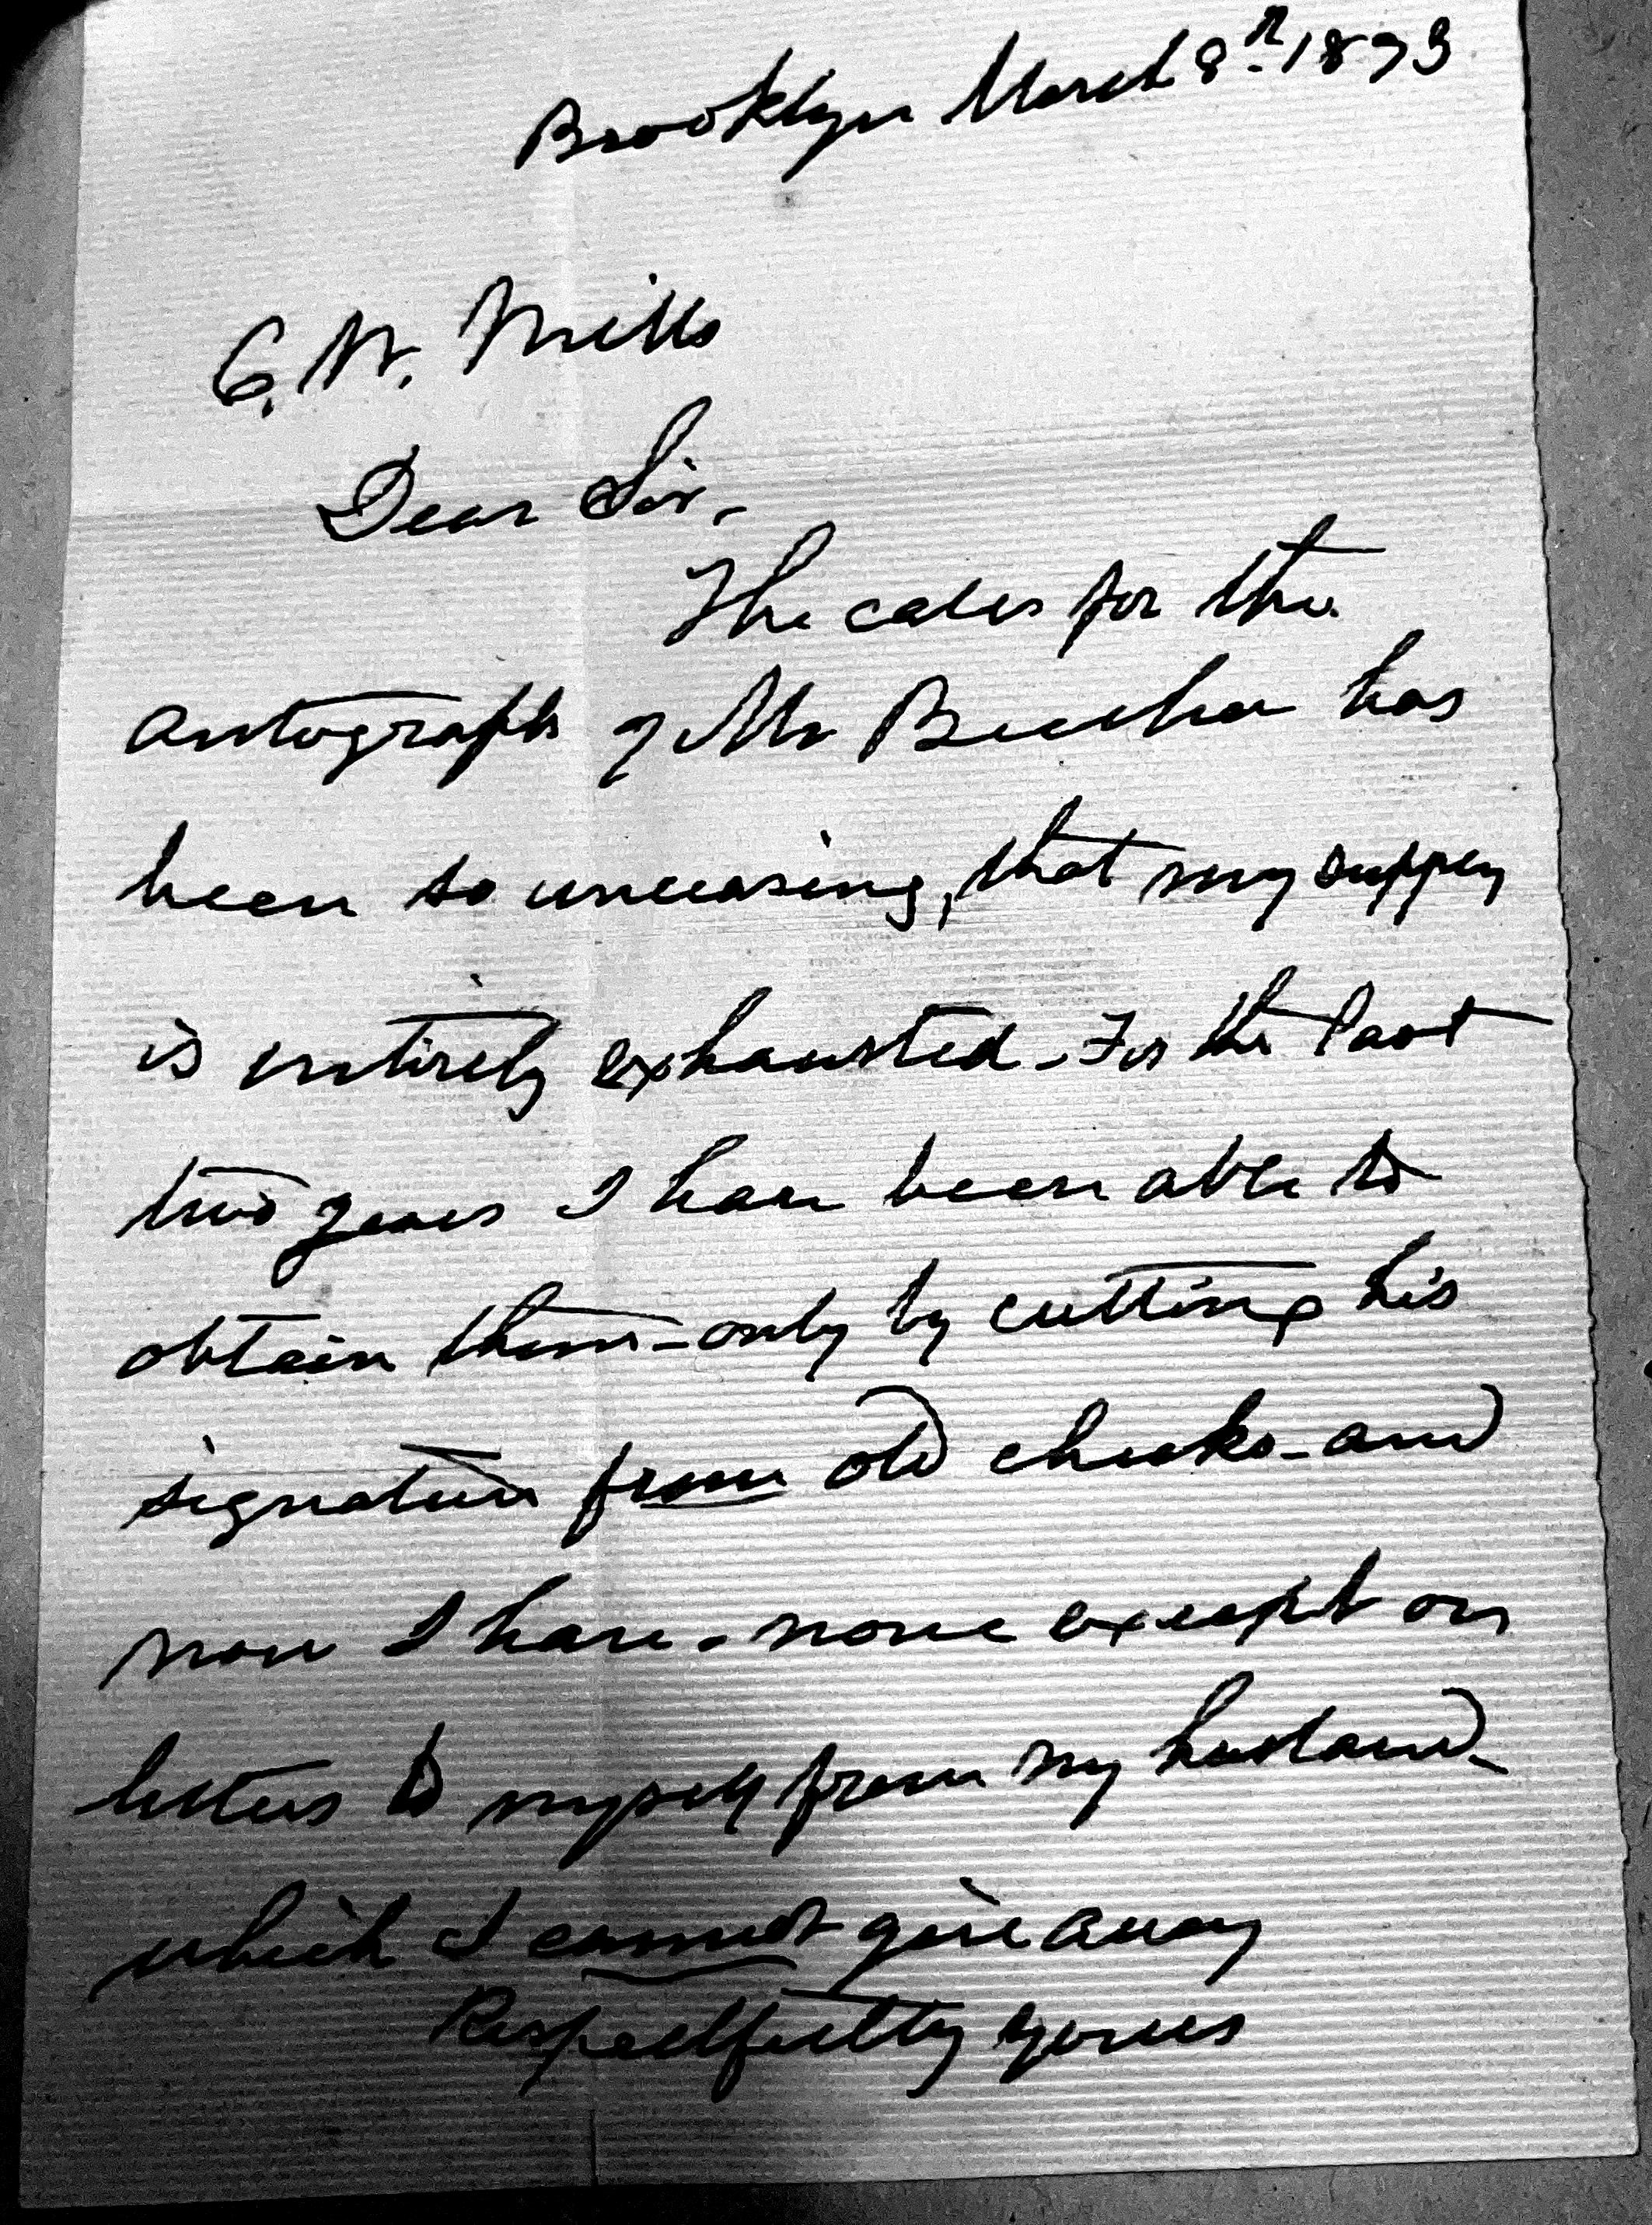 Brooklyn March 8th 1893
C. W. Mills
Dear Sir,
The calls for the
autograph of Mr Beecher has
been so unceasing, that my supply
is entirely exhausted - For the last
two years I have been able to
obtain them - only by cutting his
signature from old checks - and
now I have - none except on
letters to myself from my husband -
which I cannot give away
Respectfully yours